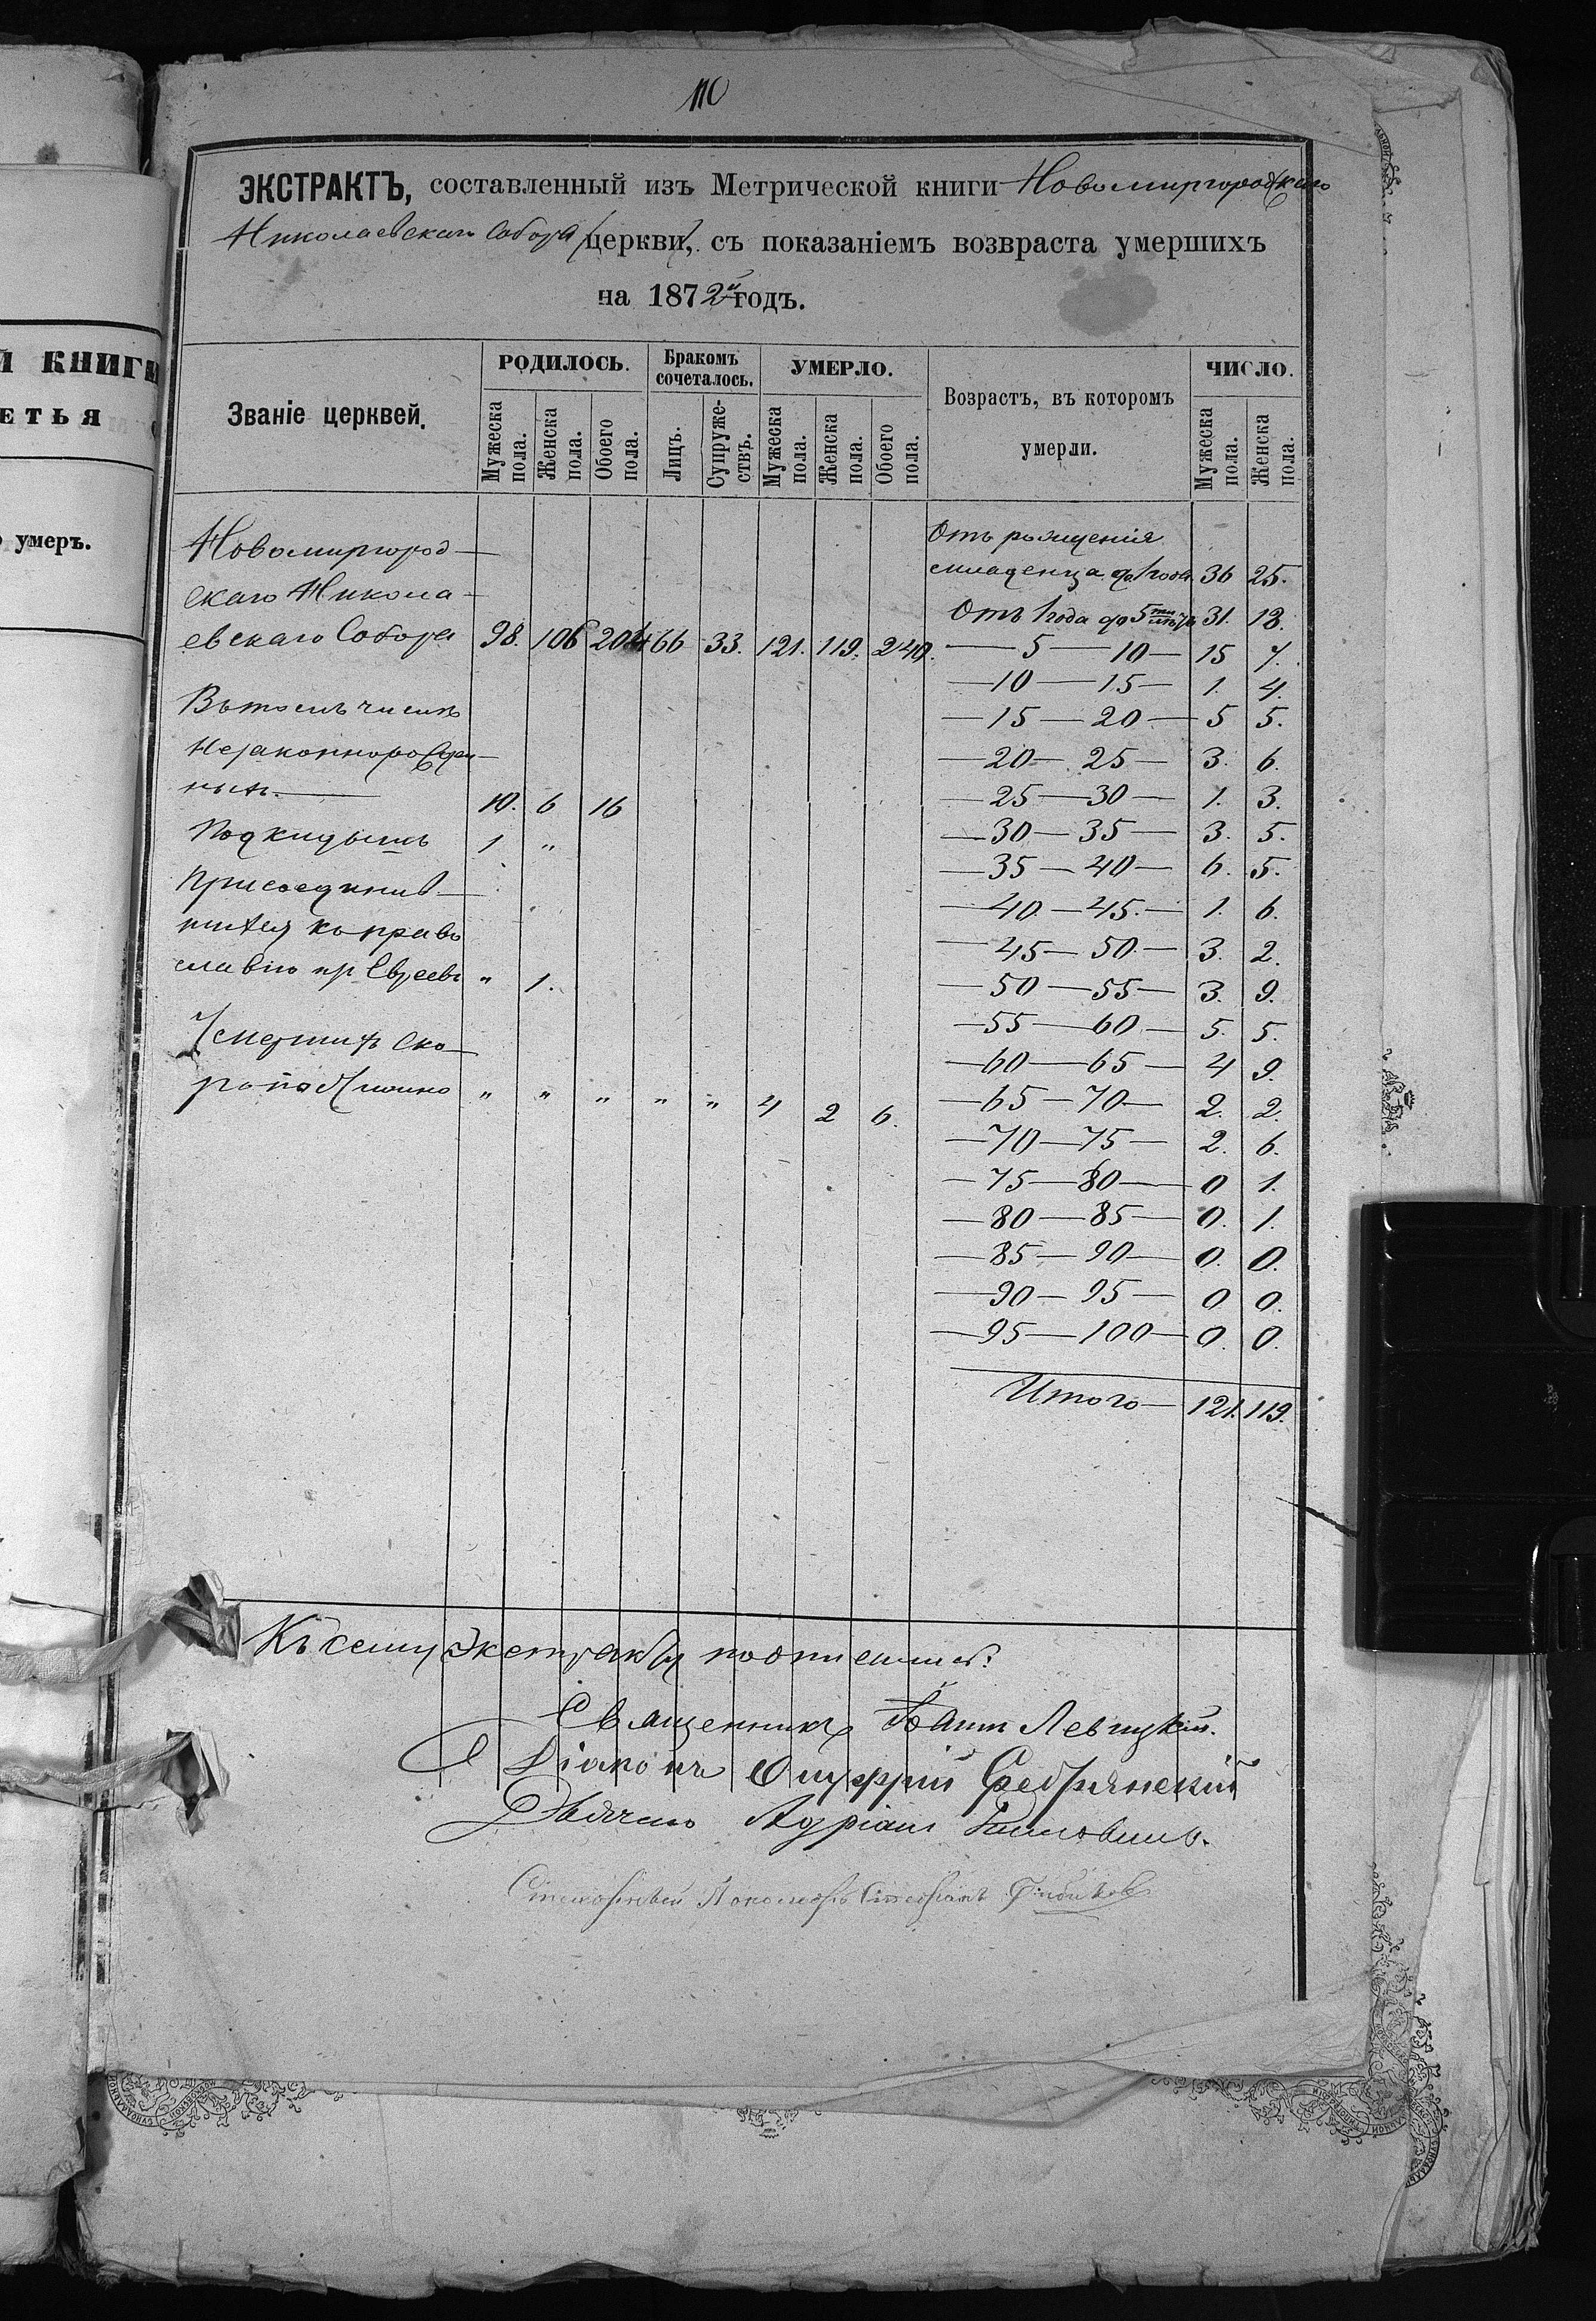 110
ЭКСТРАКТЪ, составленный изъ Метрической книги Новомиргородскаго
Николаевскаго Собора церкви, съ показаніемъ возвраста умершихъ
на 1872й годъ.
Званіе церквей.
РОДИЛОСЬ.
Бракомъ сочеталось.
УМЕРЛО.
Возрастъ, въ которомъ умерли.
ЧИСЛО.
Мужеска пола.
Женска пола.
Обоего пола.
Лицъ.
Супружествъ.
Мужеска пола.
Женска пола.
Обоего пола.
Мужеска пола.
Женска пола.
Новомиргород-
скаго Никола-
евскаго Собора 98. 106 204 66 33. 121. 119. 240.
Въ томъ числѣ
Незаконнорожден-
ныхъ. 10. 6 16
Подкидышъ 1 "
Присоединив-
шихся къ право
славію изъ Евреевъ " 1.
Умершихъ ско-
ропостижно " " " " " 4 2 6.
Отъ рожденія
младенца до 1 года 36 25.
Отъ 1 года до 5ти лѣтъ 31. 18.
— 5 — 10 — 15 7.
— 10 — 15 — 1. 4.
— 15 — 20 — 5 5.
— 20 — 25 — 3. 6.
— 25 — 30 — 1. 3.
— 30 — 35 — 3. 5.
— 35 — 40 — 6. 5.
— 40 — 45. — 1. 6.
— 45 — 50 — 3. 2.
— 50 — 55 — 3. 9.
— 55 — 60 — 5. 5.
— 60 — 65 — 4 9.
— 65 — 70 — 2. 2.
— 70 — 75 — 2. 6.
— 75 — 80 — 0 1.
— 80 — 85 — 0. 1.
— 85 — 90 — 0. 0.
— 90 — 95 — 0 0.
— 95 — 100 — 0. 0.
Итого — 121. 119.
Къ сему экстракту подписались:
Священникъ Іоаннъ Левицкій.
Діаконъ Онуфрій Сребрянскій
Дьячекъ Адріанъ
й книги
етья
умеръ.